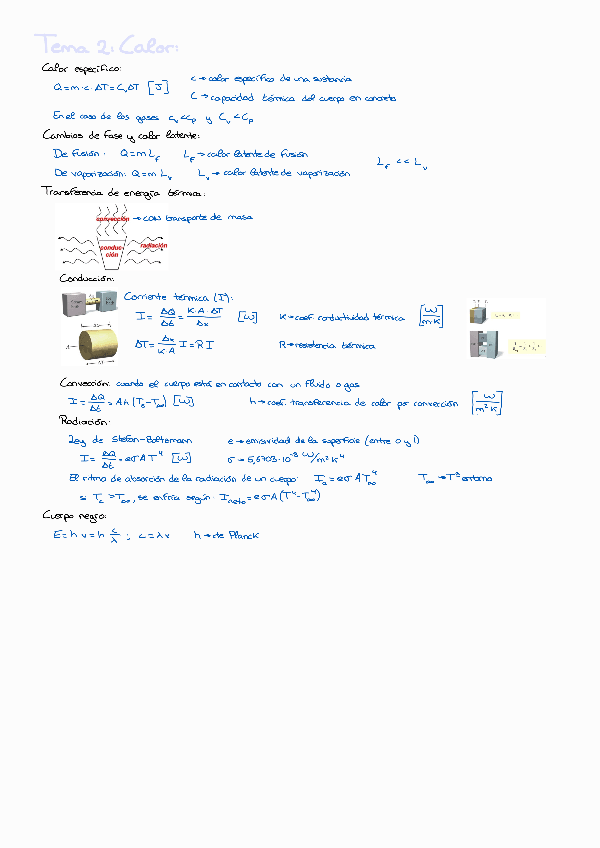 Tema 2: Calor:
Calor específico:
Q = m · c · ΔT = C, ΔT [J]
c → calor específico de una sustancia
C → capacidad térmica del cuerpo en concreto
En el caso de los gases c_v < c_p y C_v < C_p
Cambios de fase y calor latente:
De fusión: Q = m L_f L_f → calor latente de fusión
L_f << L_v
De vaporización: Q = m L_v L_v → calor latente de vaporización
Transferencia de energía térmica:
convección → con transporte de masa
conduc- radiación
ción
Conducción:
Corriente térmica (I):
I = ΔQ/Δt = K·A·ΔT/Δx [W] K → coef. conductividad térmica [W/mK]
ΔT = Δx/KA I = R I R → resistencia térmica
Convección: cuando el cuerpo está en contacto con un fluido o gas
I = ΔQ/Δt = A h (T_s - T_∞) [W] h → coef. transferencia de calor por convección [W/m² K]
Radiación:
Ley de Stefan-Boltzmann e → emisividad de la superficie (entre 0 y 1)
I = ΔQ/Δt = eσAT⁴ [W] σ = 5,6703·10⁻⁸ W/m²K⁴
El ritmo de absorción de la radiación de un cuerpo: I_a = eσAT_∞⁴ T_∞ → Tª entorno
si T_c > T_∞, se enfría según: I_neto = eσA(T⁴ - T_∞⁴)
Cuerpo negro:
E = h ν = h c/λ ; c = λν h → de Planck